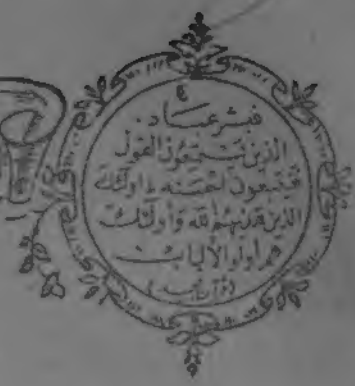 فبشر عباد
الذين يستمعون القول
فيتبعون احسنه اولئك
الذين هداهم الله واولئك
هم اولوا الألباب
(قرآن مجيد)